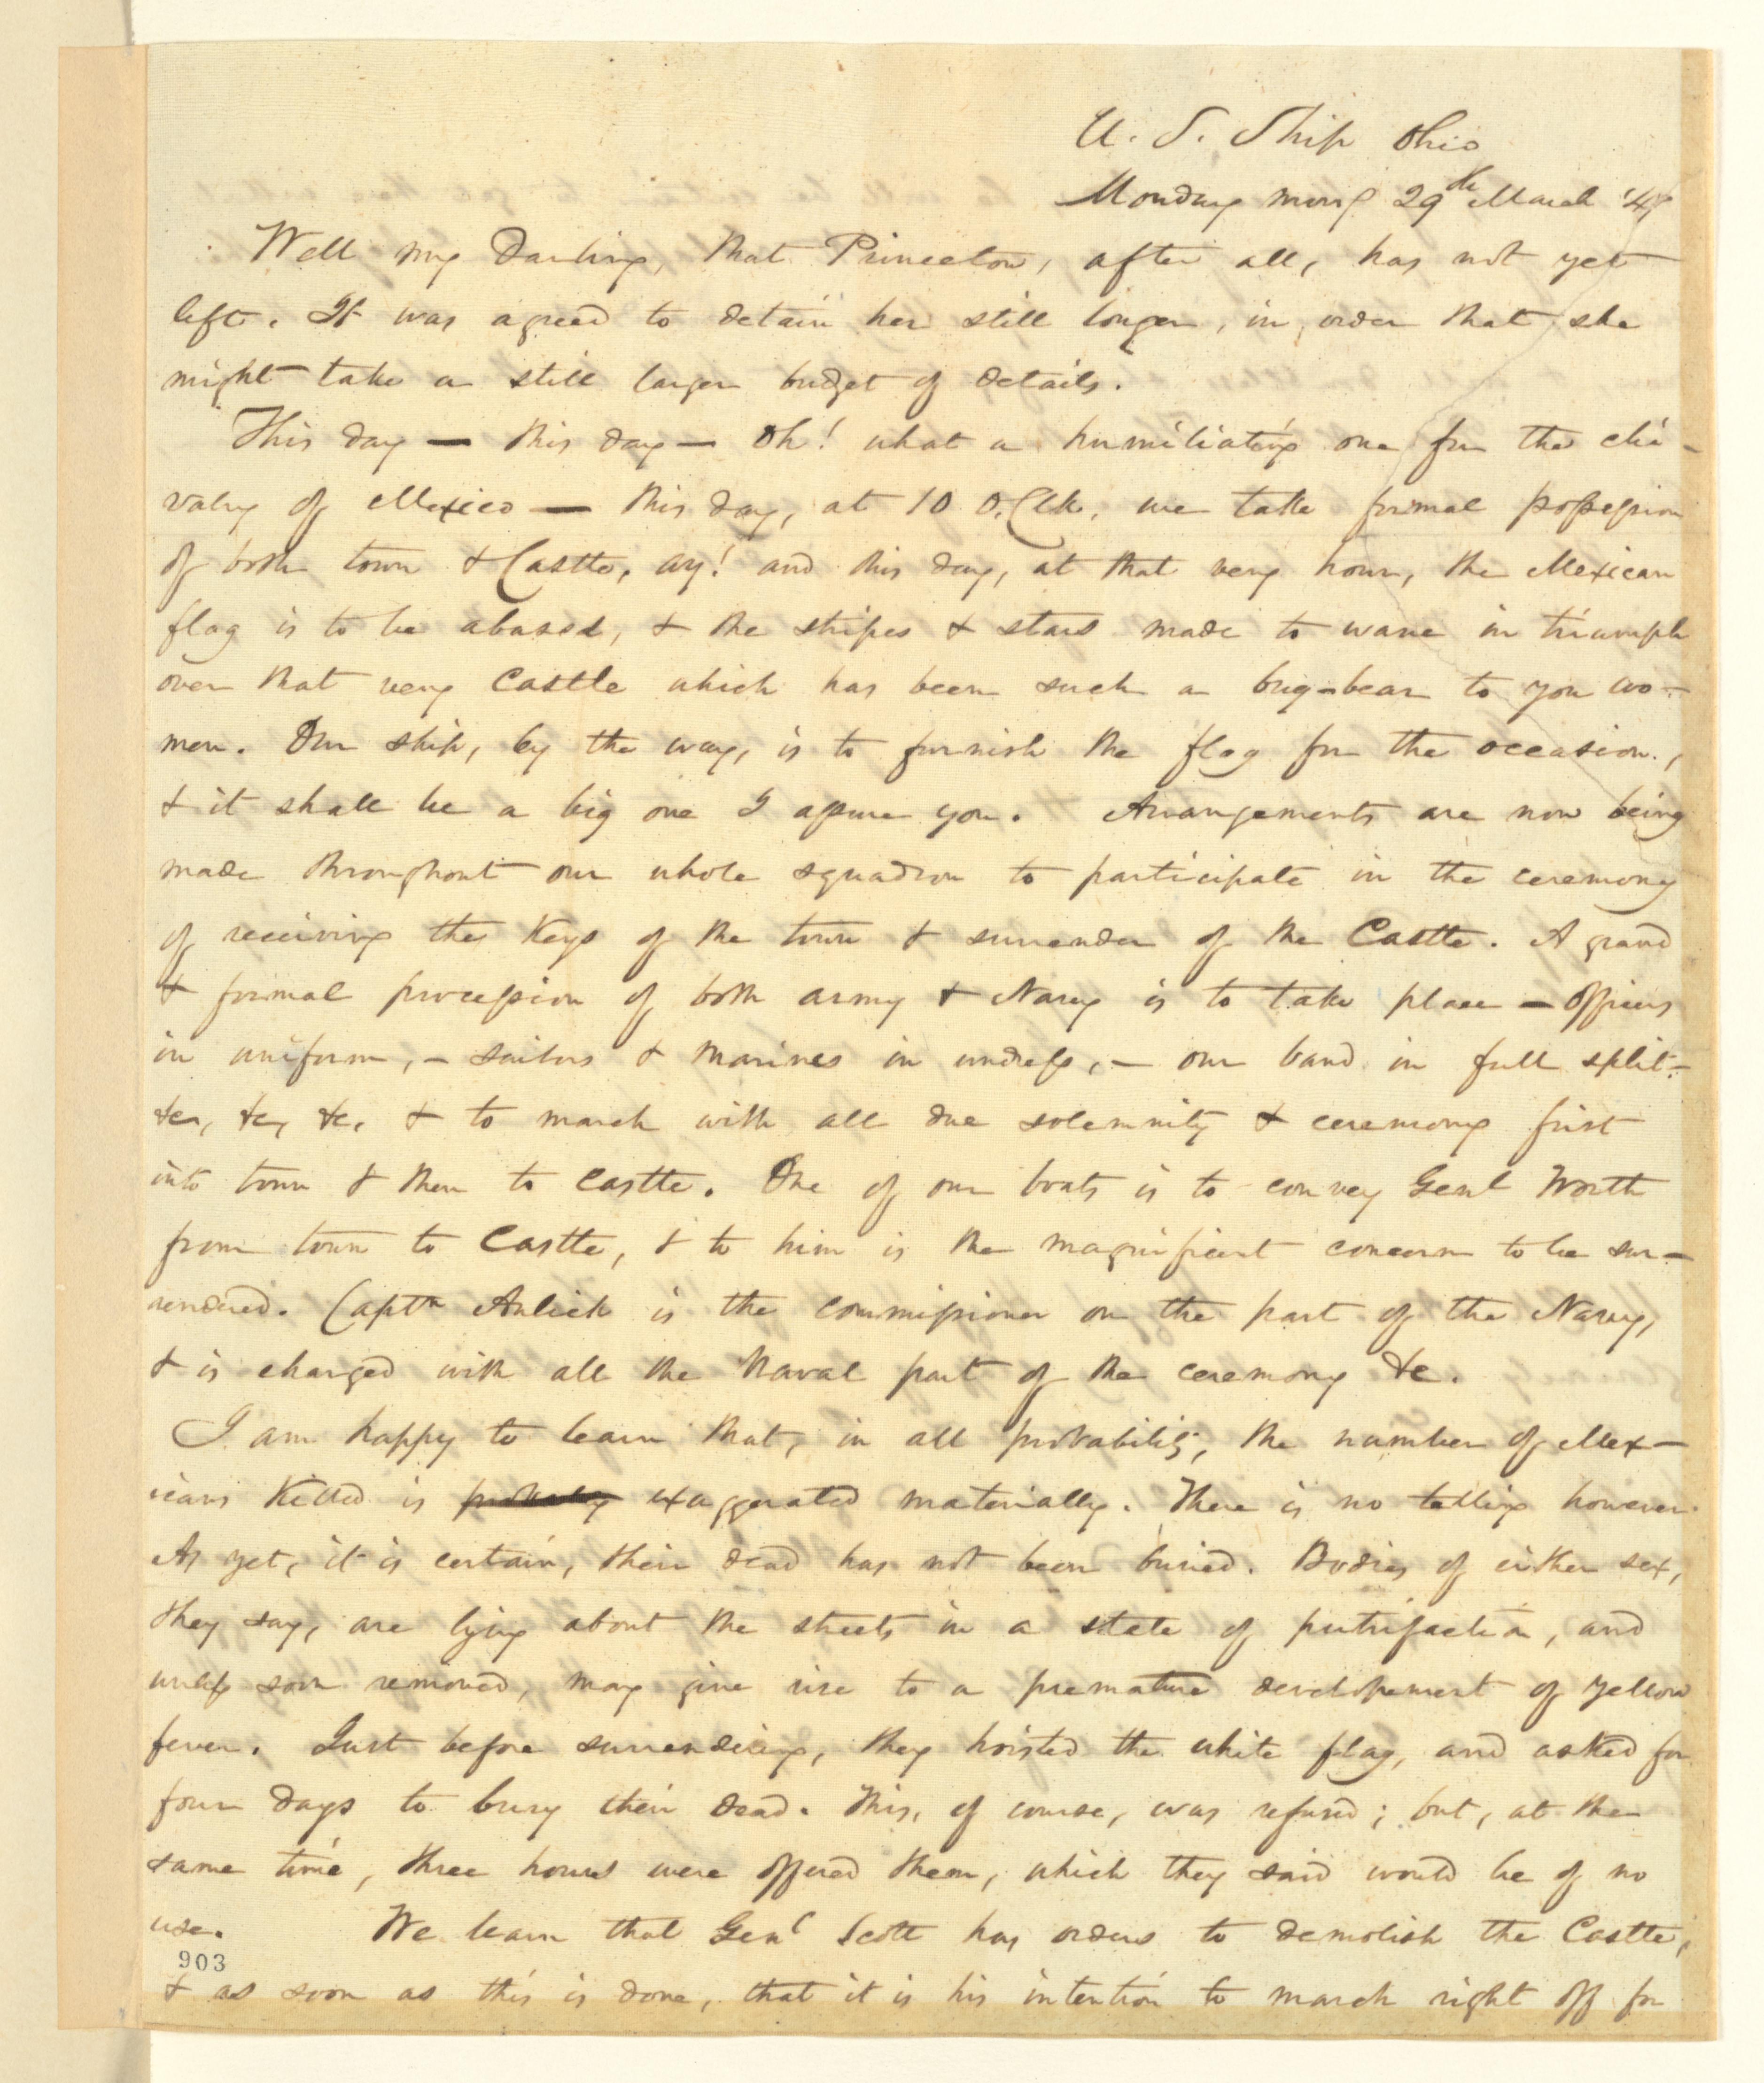 U. S. Ship Ohio
Monday morng 29th March '47
Well my Darling, that Princeton, after all, has not yet
left. It was agreed to detain her still longer, in order that she
might take a still larger budget of details.
This day — this day — Oh! what a humiliating one for the chi-
valry of Mexico — this day, at 10 O,Clk, we take formal possession
of both town & Castle, ay! and this day, at that very hour, the Mexican
flag is to be abased, & the stripes & stars made to wave in triumph
over that very Castle which has been such a bug-bear to you wo-
men. Our ship, by the way, is to furnish the flag for the occasion,
& it shall be a big one I assure you. Arrangements are now being
made throughout our whole squadron to participate in the ceremony
of receiving the Keys of the town & surrender of the Castle. A grand
& formal procession of both army & Navy is to take place — officers
in uniform, — sailors & marines in undress, — our band in full split-
ter, &c, &c. & to march with all due solemnity & ceremony first
into town & then to Castle. One of our boats is to convey Genl Worth
from town to Castle, & to him is the magnificent concern to be sur-
rendered. Captn Aulick is the commissioner on the part of the Navy,
& is charged with all the Naval part of the ceremony &c.
I am happy to learn that, in all probability, the number of Mex-
icans Killed is probably exaggerated materially. There is no telling however.
As yet, it is certain, their dead has not been buried. Bodies of either sex,
they say, are lying about the streets in a state of putrifaction, and
unless soon removed, may give rise to a premature developement of yellow
fever. Just before surrendering, they hoisted the white flag, and asked for
four days to bury their dead. This, of course, was refused; but, at the
same time, three hours were offered them, which they said would be of no
use. We learn that Genl Scott has orders to demolish the Castle,
903
& as soon as this is done, that it is his intention to march right off for